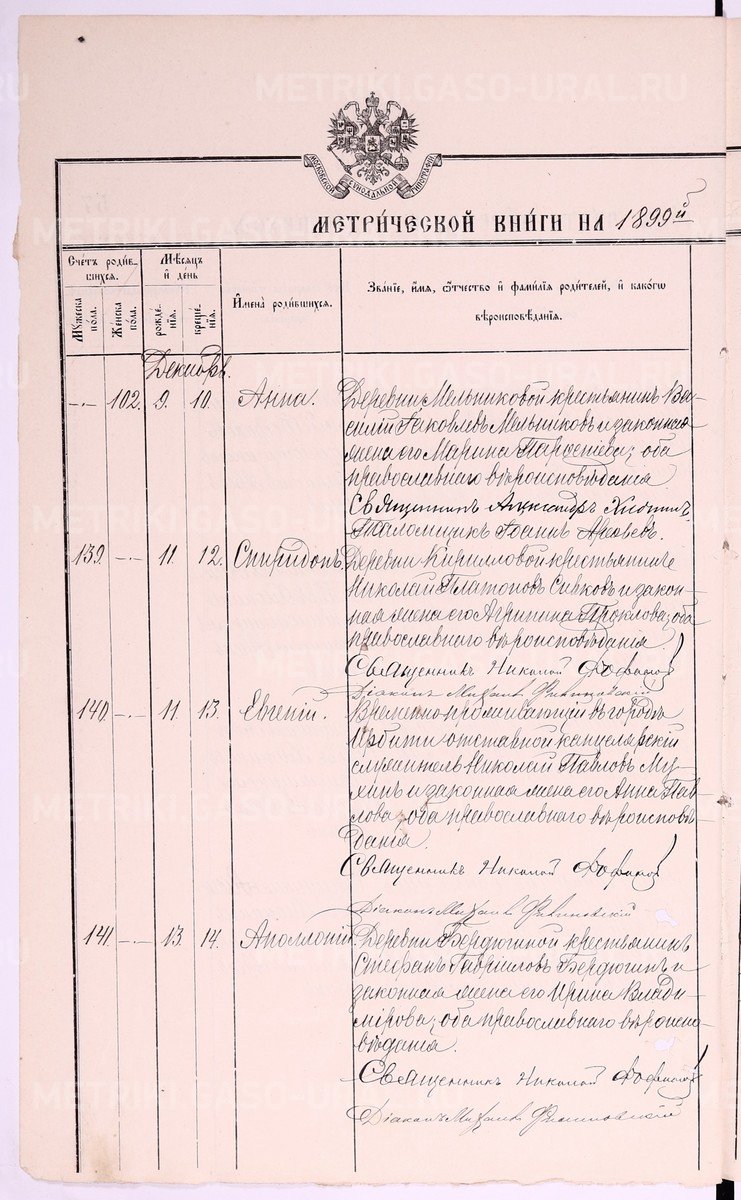 METRIKI.GASO-URAL.RU
МОСКОВСКОЙ СѴНОДАЛЬНОЙ ТИПОГРАФІИ
МЕТРИ́ЧЕСКОЙ КНИ́ГИ НА 1899й
Счетъ родив-
шихся.
Мѣсяцъ
и день
Имена родившихся.
Званіе, имя, ѻтчество и фамилія родителей, и какогѡ
вѣроисповѣданія.
Мужеска
пола.
Женска
пола.
рожде-
нія.
креще-
нія.
Декабрь.
-- 102. 9. 10. Анна. Деревни Мельниковой крестьянинъ Ва-
силій Іаковлевъ Мельниковъ и законная
жена его Марина Парѳеніева; оба
православнаго вѣроисповѣданія
Священникъ Александръ
Псаломщикъ Іоаннъ
139. -- 11. 12. Спиридонъ. Деревни Кирилловой крестьянинъ
Николай Платоновъ Сивковъ и закон-
ная жена его Агрипина Проклова; оба
православнаго вѣроисповѣданія.
Священникъ Николай
Діаконъ Михаилъ
140. -- 11. 13. Евгеній. Временно проживающій въ городѣ
Ирбити отставной канцелярскій
служитель Николай Павловъ Му-
хинъ и законная жена его Анна Пав-
лова; оба православнаго вѣроисповѣ-
данія.
Священникъ Николай
Діаконъ Михаилъ
141. -- 13. 14. Аполлоній. Деревни Бердюгиной крестьянинъ
Стефанъ Гавріиловъ Бердюгинъ и
законная жена его Ирина Влади-
мірова; оба православнаго вѣроиспо-
вѣданія.
Священникъ Николай
Діаконъ Михаилъ